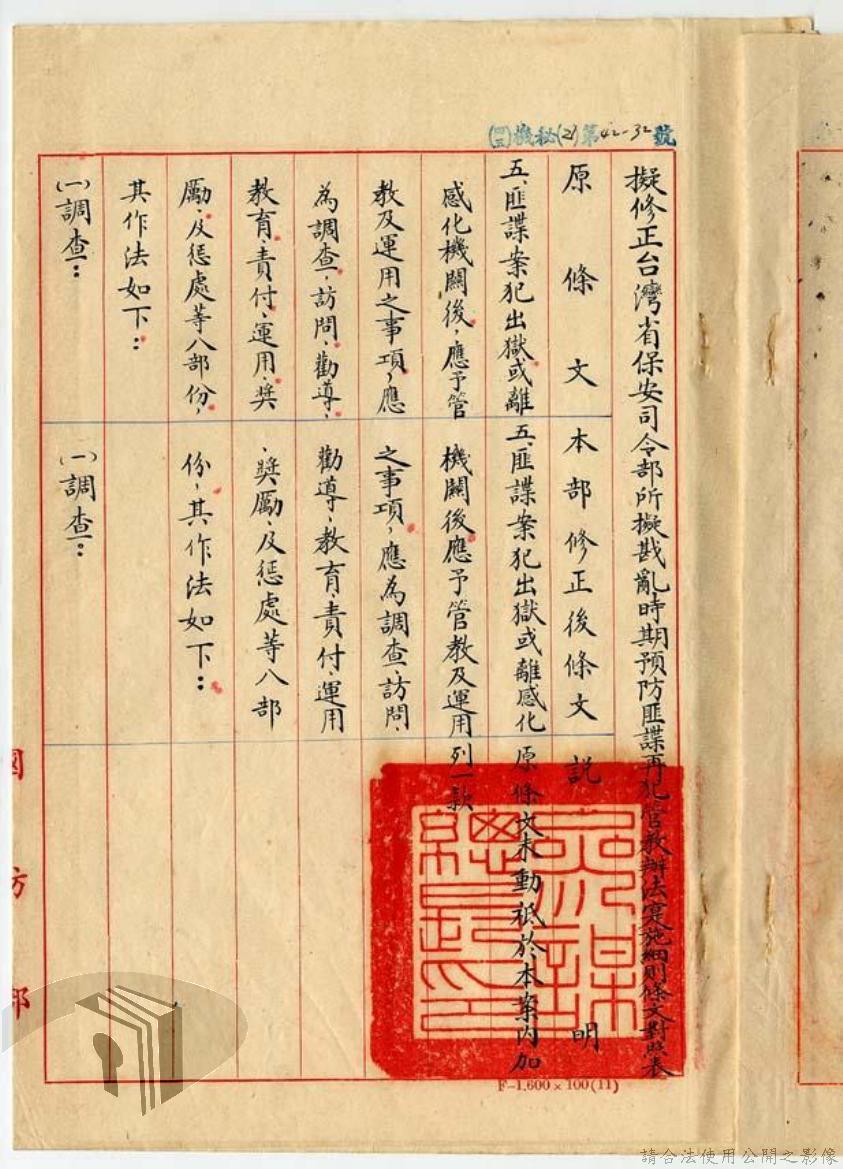 (四三)機秘(2)第42-32號
擬修正台灣省保安司令部所擬戡亂時期預防匪諜再犯管教辦法實施細則條文對照表
原條文
五、匪諜案犯出獄或離
感化機關後，應予管
教及運用之事項，應
為調查、訪問、勸導、
教育、責付、運用、奬
勵、及懲處等八部份，
其作法如下：
(一)調查：
本部修正後條文
五、匪諜案犯出獄或離感化
機關後應予管教及運用
之事項，應為調查、訪問、
勸導、教育、責付、運用
、奬勵、及懲處等八部
份，其作法如下：
(一)調查：
說明
原條文未動祗於本案內加
列一款
國防部
F-1,600×100(11)
請合法使用公開之影像